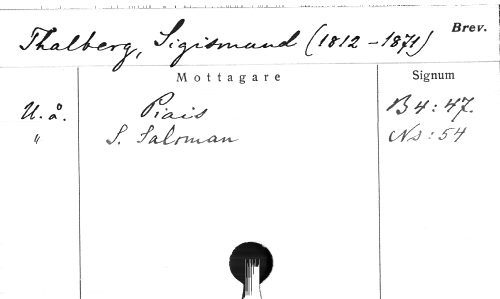 Brev.
Thalberg, Sigismund (1812-1871)
Mottagare Signum
U.å. Piais B4:47.
" S. Saloman Ns:54